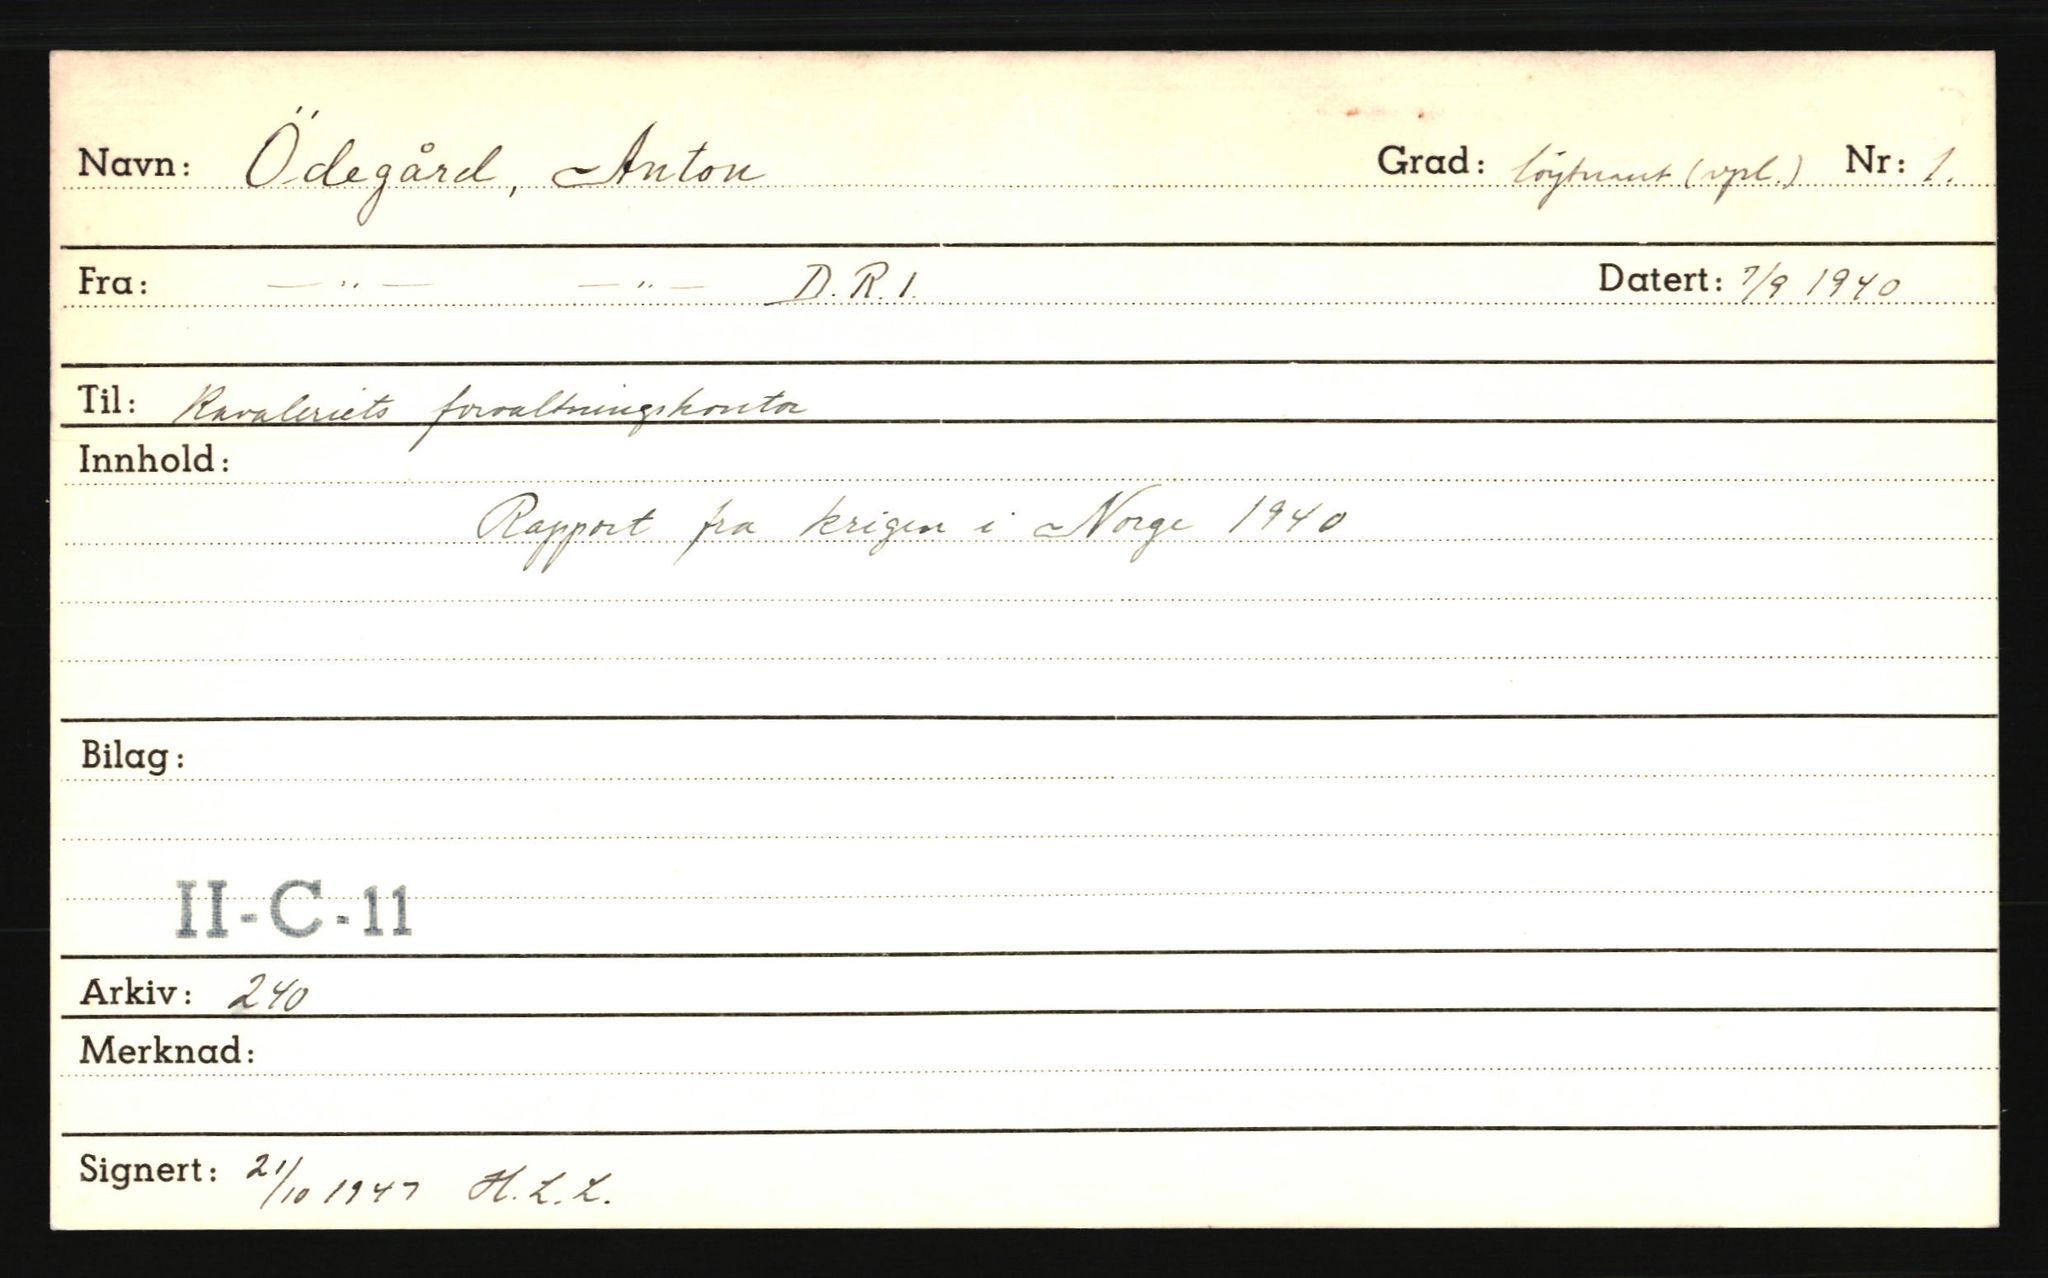 Navn: Ödegård, Anton Grad: löytnant (vpl.) Nr: 1.
Fra: — " — — " — D.R.1. Datert: 7/9 1940
Til: Kavaleriets forvaltningskontor
Innhold:
Rapport fra krigen i Norge 1940
Bilag:
II-C-11
Arkiv: 240
Merknad:
Signert: 21/10 1947 H.L.L.